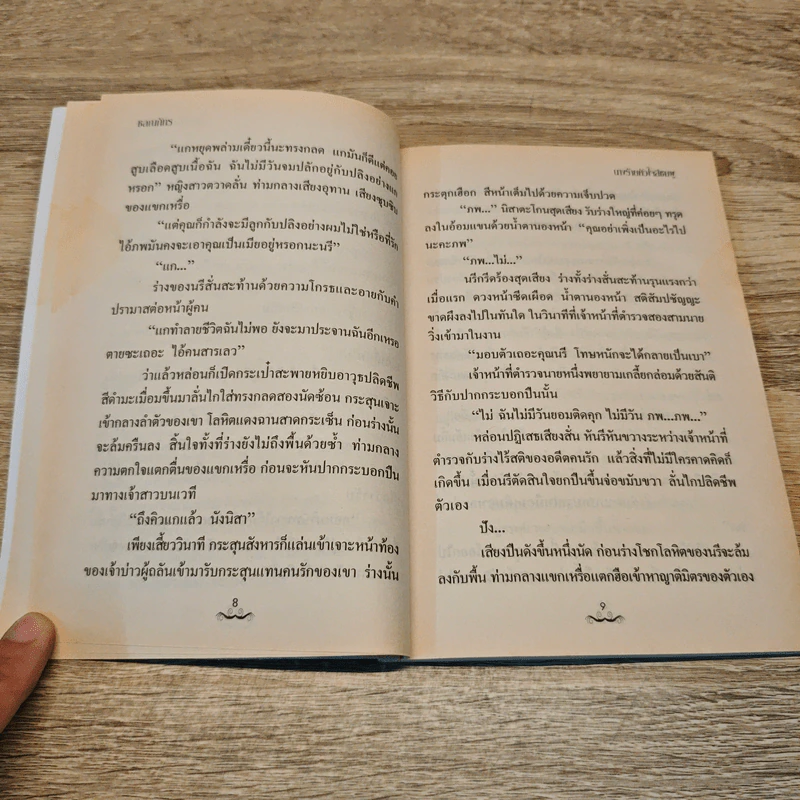 ชลาภัทร
“แกหยุดพล่ามเดี๋ยวนี้นะทรงกลด แกมันก็ดีแต่คอย
สูบเลือดสูบเนื้อฉัน ฉันไม่มีวันจมปลักอยู่กับปลิงอย่างแก
หรอก” หญิงสาวตวาดลั่น ท่ามกลางเสียงอุทาน เสียงซุบซิบ
ของแขกเหรื่อ
“แต่คุณก็กำลังจะมีลูกกับปลิงอย่างผมไม่ใช่หรือที่รัก
ไอ้ภพมันคงจะเอาคุณเป็นเมียอยู่หรอกนะนรี”
“แก...”
ร่างของนรีสั่นสะท้านด้วยความโกรธและอายกับคำ
ปรามาสต่อหน้าผู้คน
“แกทำลายชีวิตฉันไม่พอ ยังจะมาประจานฉันอีกเหรอ
ตายซะเถอะ ไอ้คนสารเลว”
ว่าแล้วหล่อนก็เปิดกระเป๋าสะพายหยิบอาวุธปลิดชีพ
สีดำมะเมื่อมขึ้นมาลั่นไกใส่ทรงกลดสองนัดซ้อน กระสุนเจาะ
เข้ากลางลำตัวของเขา โลหิตแดงฉานสาดกระเซ็น ก่อนร่างนั้น
จะล้มครืนลง สิ้นใจทั้งที่ร่างยังไม่ถึงพื้นด้วยซ้ำ ท่ามกลาง
ความตกใจแตกตื่นของแขกเหรื่อ ก่อนจะหันปากกระบอกปืน
มาทางเจ้าสาวบนเวที
“ถึงคิวแกแล้ว นังนิสา”
เพียงเสี้ยววินาที กระสุนสังหารก็แล่นเข้าเจาะหน้าท้อง
ของเจ้าบ่าวผู้ถลันเข้ามารับกระสุนแทนคนรักของเขา ร่างนั้น
8
กระตุกเฮือก สีหน้าเต็มไปด้วยความเจ็บปวด
“ภพ...” นิสาตะโกนสุดเสียง รับร่างใหญ่ที่ค่อยๆ ทรุด
ลงในอ้อมแขนด้วยน้ำตานองหน้า “คุณอย่าเพิ่งเป็นอะไรไป
นะคะภพ”
“ภพ...ไม่...”
นรีกรีดร้องสุดเสียง ร่างทั้งร่างสั่นสะท้านรุนแรงกว่า
เมื่อแรก ดวงหน้าซีดเผือด น้ำตานองหน้า สติสัมปชัญญะ
ขาดผึงลงไปในทันใด ในวินาทีที่เจ้าหน้าที่ตำรวจสองสามนาย
วิ่งเข้ามาในงาน
“มอบตัวเถอะคุณนรี โทษหนักจะได้กลายเป็นเบา”
เจ้าหน้าที่ตำรวจนายหนึ่งพยายามเกลี้ยกล่อมด้วยสันติ
วิธีกับปากกระบอกปืนนั้น
“ไม่ ฉันไม่มีวันยอมติดคุก ไม่มีวัน ภพ...ภพ...”
หล่อนปฏิเสธเสียงสั่น หันรีหันขวางระหว่างเจ้าหน้าที่
ตำรวจกับร่างไร้สติของอดีตคนรัก แล้วสิ่งที่ไม่มีใครคาดคิดก็
เกิดขึ้น เมื่อนรีตัดสินใจยกปืนขึ้นจ่อขมับขวา ลั่นไกปลิดชีพ
ตัวเอง
ปัง...
เสียงปืนดังขึ้นหนึ่งนัด ก่อนร่างโชกโลหิตของนรีจะล้ม
ลงกับพื้น ท่ามกลางแขกเหรื่อแตกฮือเข้าหาญาติมิตรของตัวเอง
9